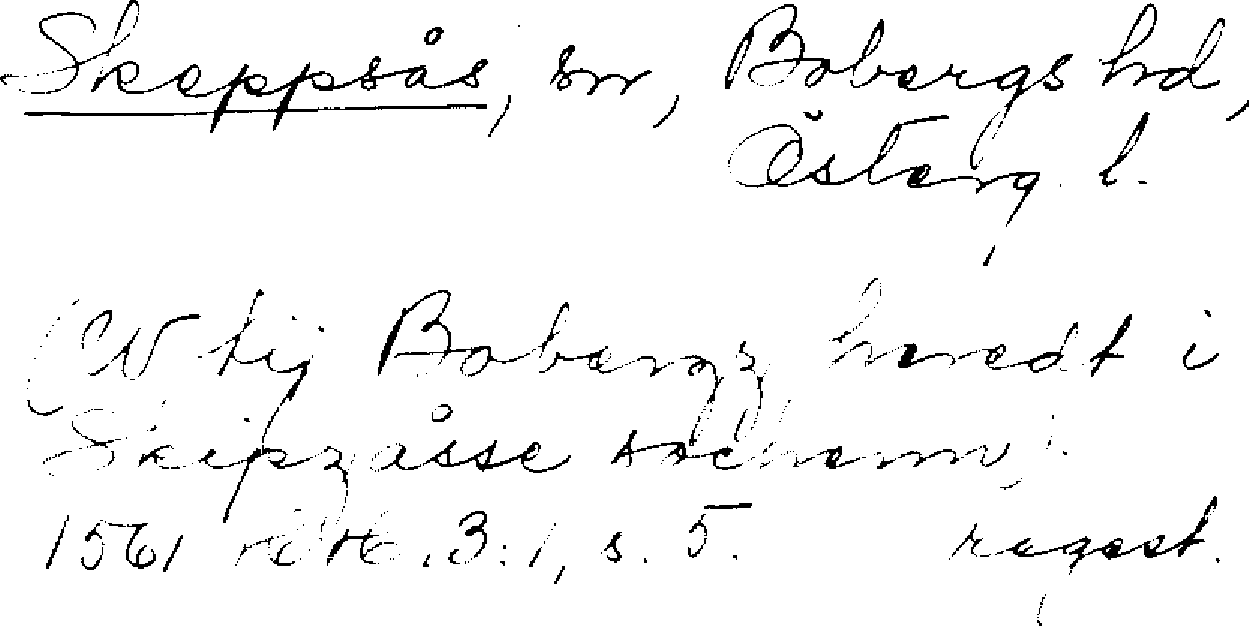 Skeppsås, sn, Bobergs hd,
Österg. l.
(W tij Bobergz heredt i
Skipzåsse sochenn).
1561 .3:1, s. 5. regest.